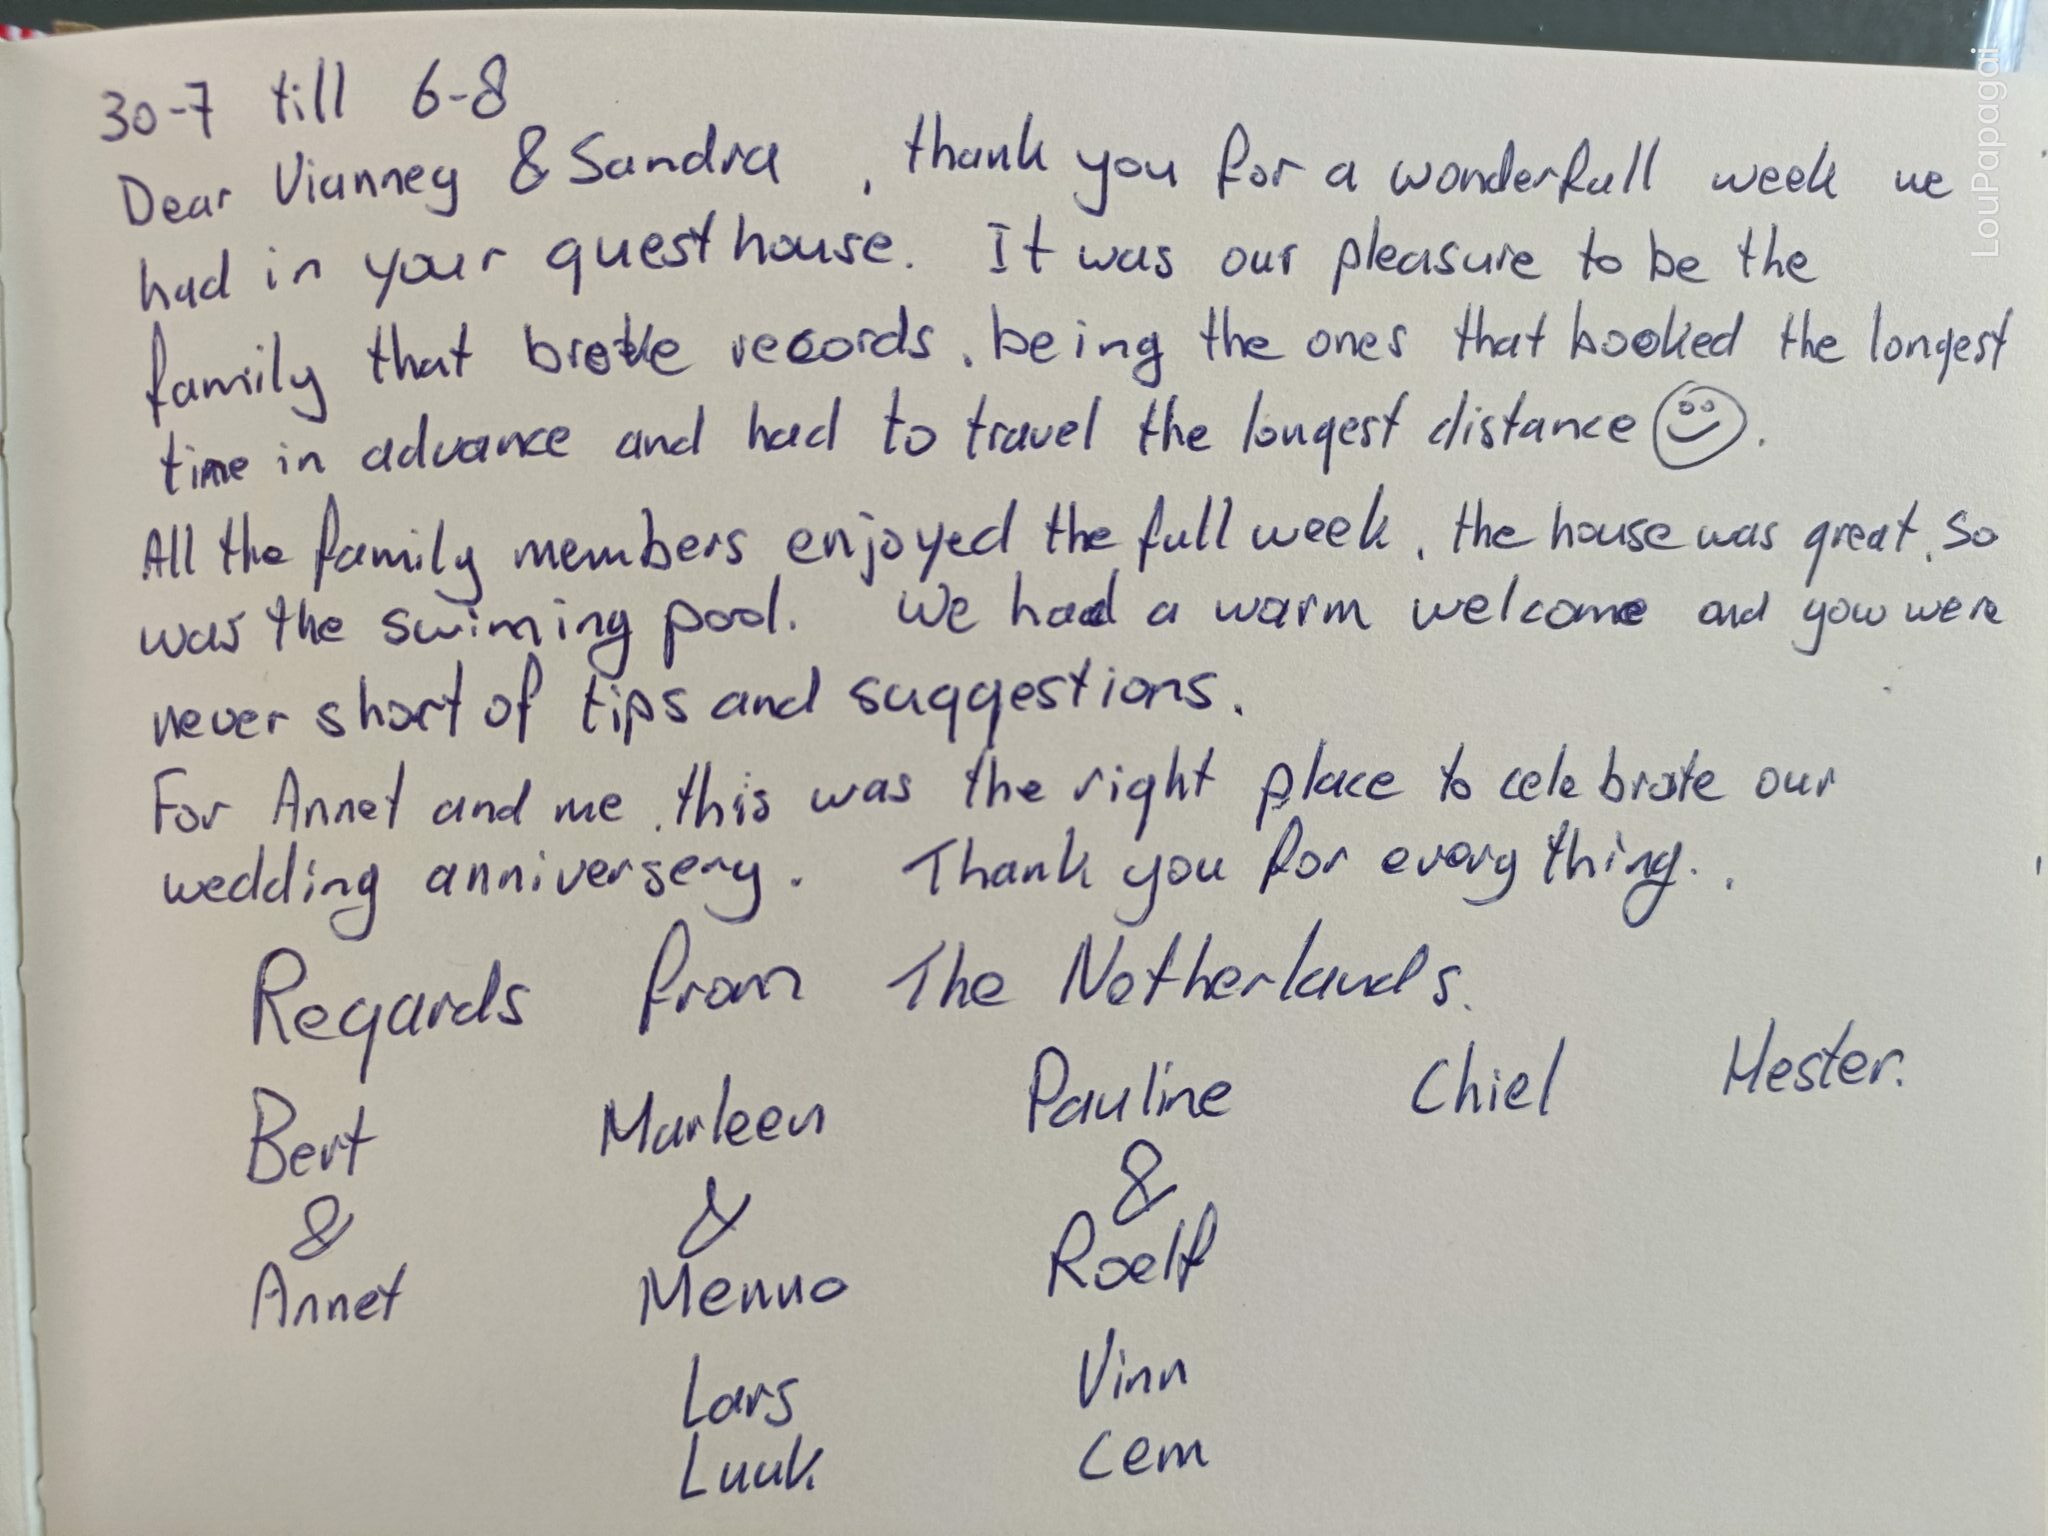 30-7 till 6-8
Dear Vianney & Sandra, thank you for a wonderfull week we
had in your guesthouse. It was our pleasure to be the
family that broke records, being the ones that booked the longest
time in advance and had to travel the longest distance ☺.
All the family members enjoyed the full week, the house was great, so
was the swiming pool. We had a warm welcome and you were
never short of tips and suggestions.
For Annet and me, this was the right place to celebrate our
wedding anniversery. Thank you for everything..
Regards from The Netherlands.
Bert Marleen Pauline Chiel Hester.
& & &
Annet Menno Roelf
Lars Vinn
Luuk Cem
LouPapagai